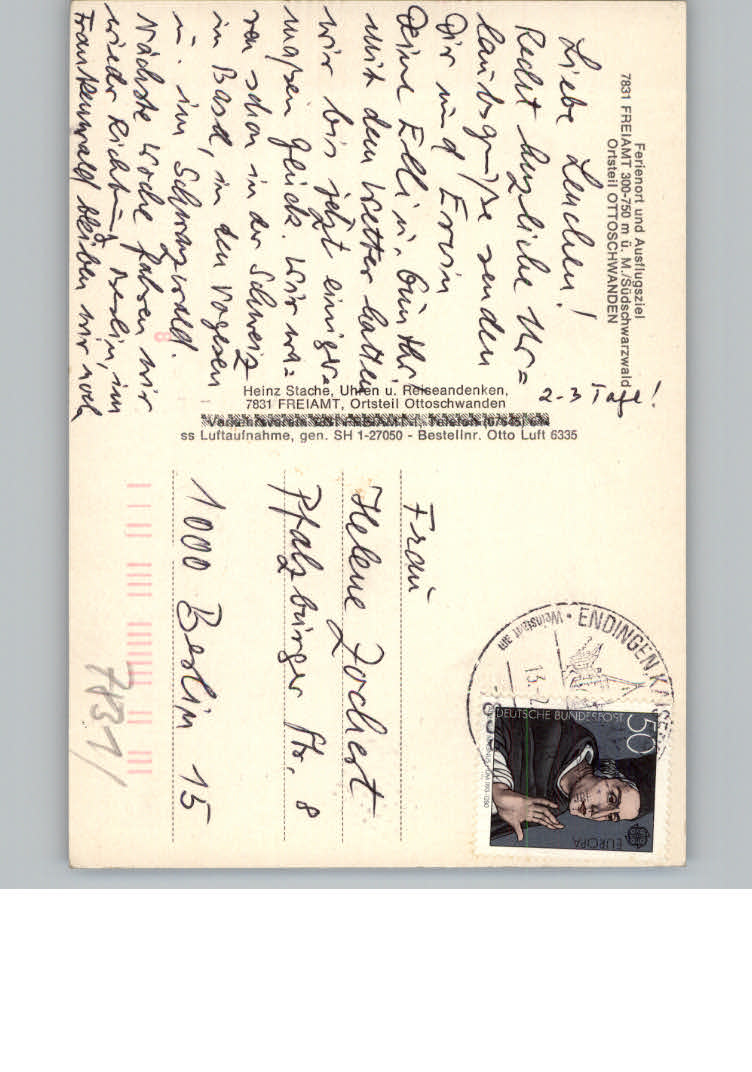 Ferienort und Ausflugsziel
7831 FREIAMT 300-750 m ü. M./Südschwarzwald
Ortsteil OTTOSCHWANDEN
Liebe Lenchen!
Recht herzliche Ur=
laubsgrüße senden
Dir und Erwin
Deine Elli u. Günther
mit dem Wetter hatten
wir bis jetzt einiger=
maßen Glück. Wir wa=
ren schon in der Schweiz
in Basel, in den Vogesen
u. im Schwarzwald.
Nächste Woche fahren wir
wieder Richtung Berlin, im
Frankenwald bleiben wir noch
2-3 Tage!
Heinz Stache, Uhren u. Reiseandenken,
7831 FREIAMT, Ortsteil Ottoschwanden
ss Luftaufnahme, gen. SH 1-27050 - Bestellnr. Otto Luft 6335
Frau
Helene Zochert
Pfalzburger Str. 8
1000 Berlin 15
ENDINGEN
Weinstadt am
13.
DEUTSCHE BUNDESPOST
50
EUROPA
7831/
8